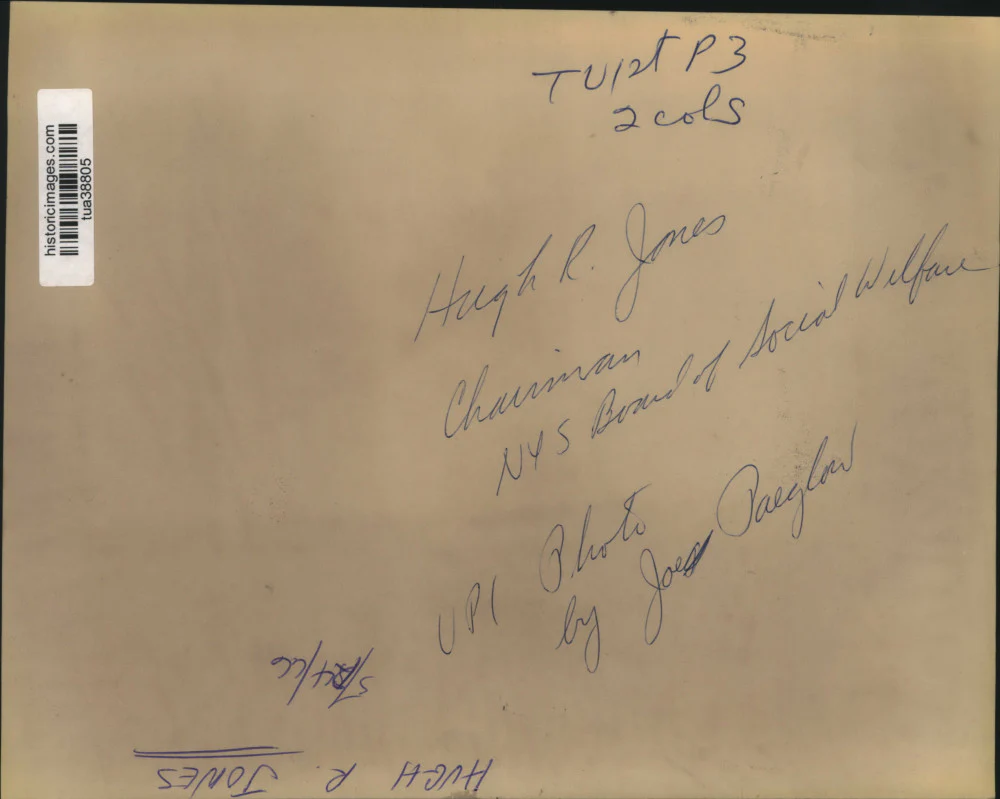 TU 1st P3
2 cols
historicimages.com
tua38805
Hugh R. Jones
Chairman
NYS Board of Social Welfare
UPI Photo
by Joe Paeglow
5/24/66
HUGH R JONES